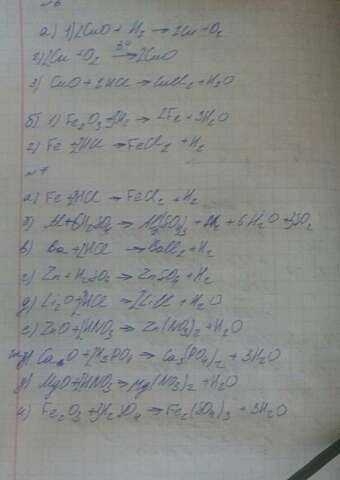 №6
а) 1) 2CuO + H2 → 2Cu + O2
2) 2Cu + O2 → 2CuO
3) CuO + 2HCl → CuCl2 + H2O
б) 1) Fe2O3 + 3H2 → 2Fe + 3H2O
2) Fe + 2HCl → FeCl2 + H2
№7
а) Fe + 2HCl → FeCl2 + H2
в) Ba + 2HCl → BaCl2 + H2
г) Zn + H2SO4 → ZnSO4 + H2
д) Li2O + 2HCl → 2LiCl + H2O
е) ZnO + 2HNO3 → Zn(NO3)2 + H2O
CaO + 2H3PO4 → Ca3(PO4)2 + 3H2O
MgO + 2HNO3 → Mg(NO3)2 + H2O
и) Fe2O3 + 3H2SO4 → Fe2(SO4)3 + 3H2O